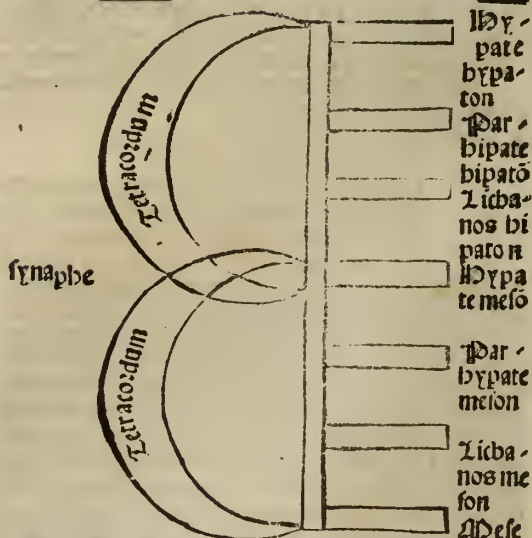 Tetracordum
synaphe
Tetracordum
Hy-
pate
hypa-
ton
Par-
hipate
hipatõ
Licha-
nos hi
paton
Hypa
te mesõ
Par-
hypate
meson
Licha-
nos me
son
Mese